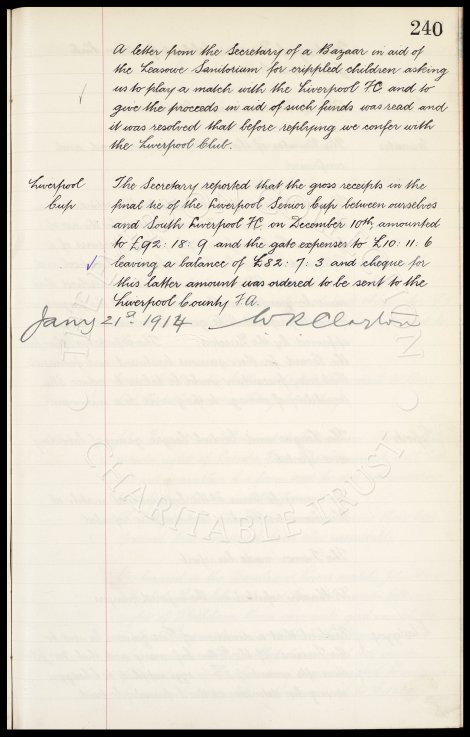 240
A letter from the Secretary of a Bazaar in aid of
the Leasowe Sanitorium for crippled children asking
us to play a match with the Liverpool FC and to
give the proceeds in aid of such funds was read and
it was resolved that before replying we confer with
the Liverpool Club.
Liverpool
Cup
The Secretary reported that the gross receipts in the
final tie of the Liverpool Senior Cup between ourselves
and South Liverpool FC, on December 10th, amounted
to £92: 18: 9 and the gate expenses to £10: 11: 6
leaving a balance of £82: 7: 3 and cheque for
this latter amount was ordered to be sent to the
Liverpool County F.A.
Jany 21st 1914 W R Clayton
CHARITABLE TRUST